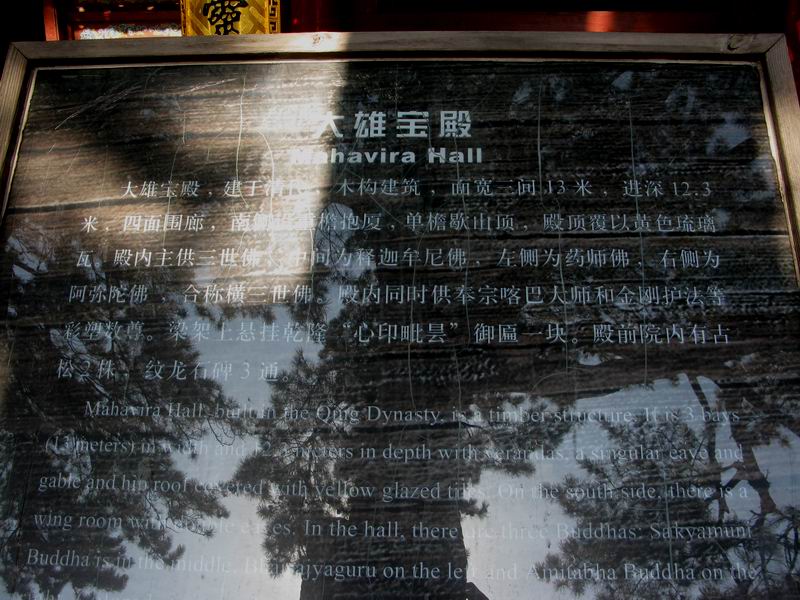 靈
大雄宝殿
Mahavira Hall
大雄宝殿，建于清代，木构建筑，面宽三间13米，进深12.3
米，四面围廊，南侧 重檐抱厦，单檐歇山顶，殿顶覆以黄色琉璃
瓦。殿内主供三世佛，中间为释迦牟尼佛，左侧为药师佛，右侧为
阿弥陀佛，合称横三世佛。殿内同时供奉宗喀巴大师和金刚护法等
彩塑数尊。梁架上悬挂乾隆“心印毗昙”御匾一块。殿前院内有古
松2株，纹龙石碑3通。
Mahavira Hall, built in the Qing Dynasty, is a timber structure. It is 3 bays
(13 meters) in width and 12.3 meters in depth with verandas, a singular eave and
gable and hip roof covered with yellow glazed tiles. On the south side, there is a
wing room with double eaves. In the hall, there are three Buddhas: Sakyamuni
Buddha is in the middle, Bhaisajyaguru on the left and Amitabha Buddha on the